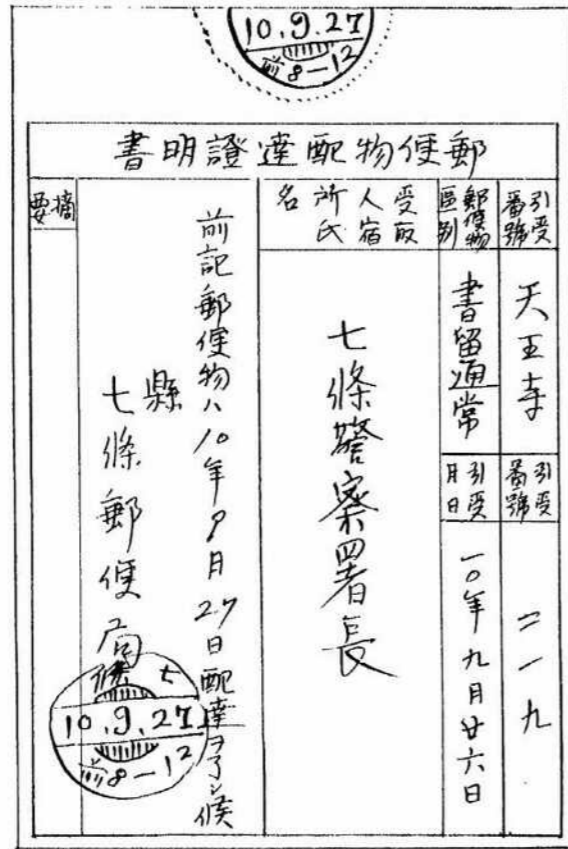 10.9.27
前8-12
郵便物配達證明書
引受番號
天王寺
引受番號
二一九
郵便物區別
書留通常
引受月日
一〇年九月廿六日
受取人宿所氏名
七條警察署長
前記郵便物ハ10年9月27日配達ヲ了シ候
縣
七條郵便局
七條
10.9.27
前8-12
摘要